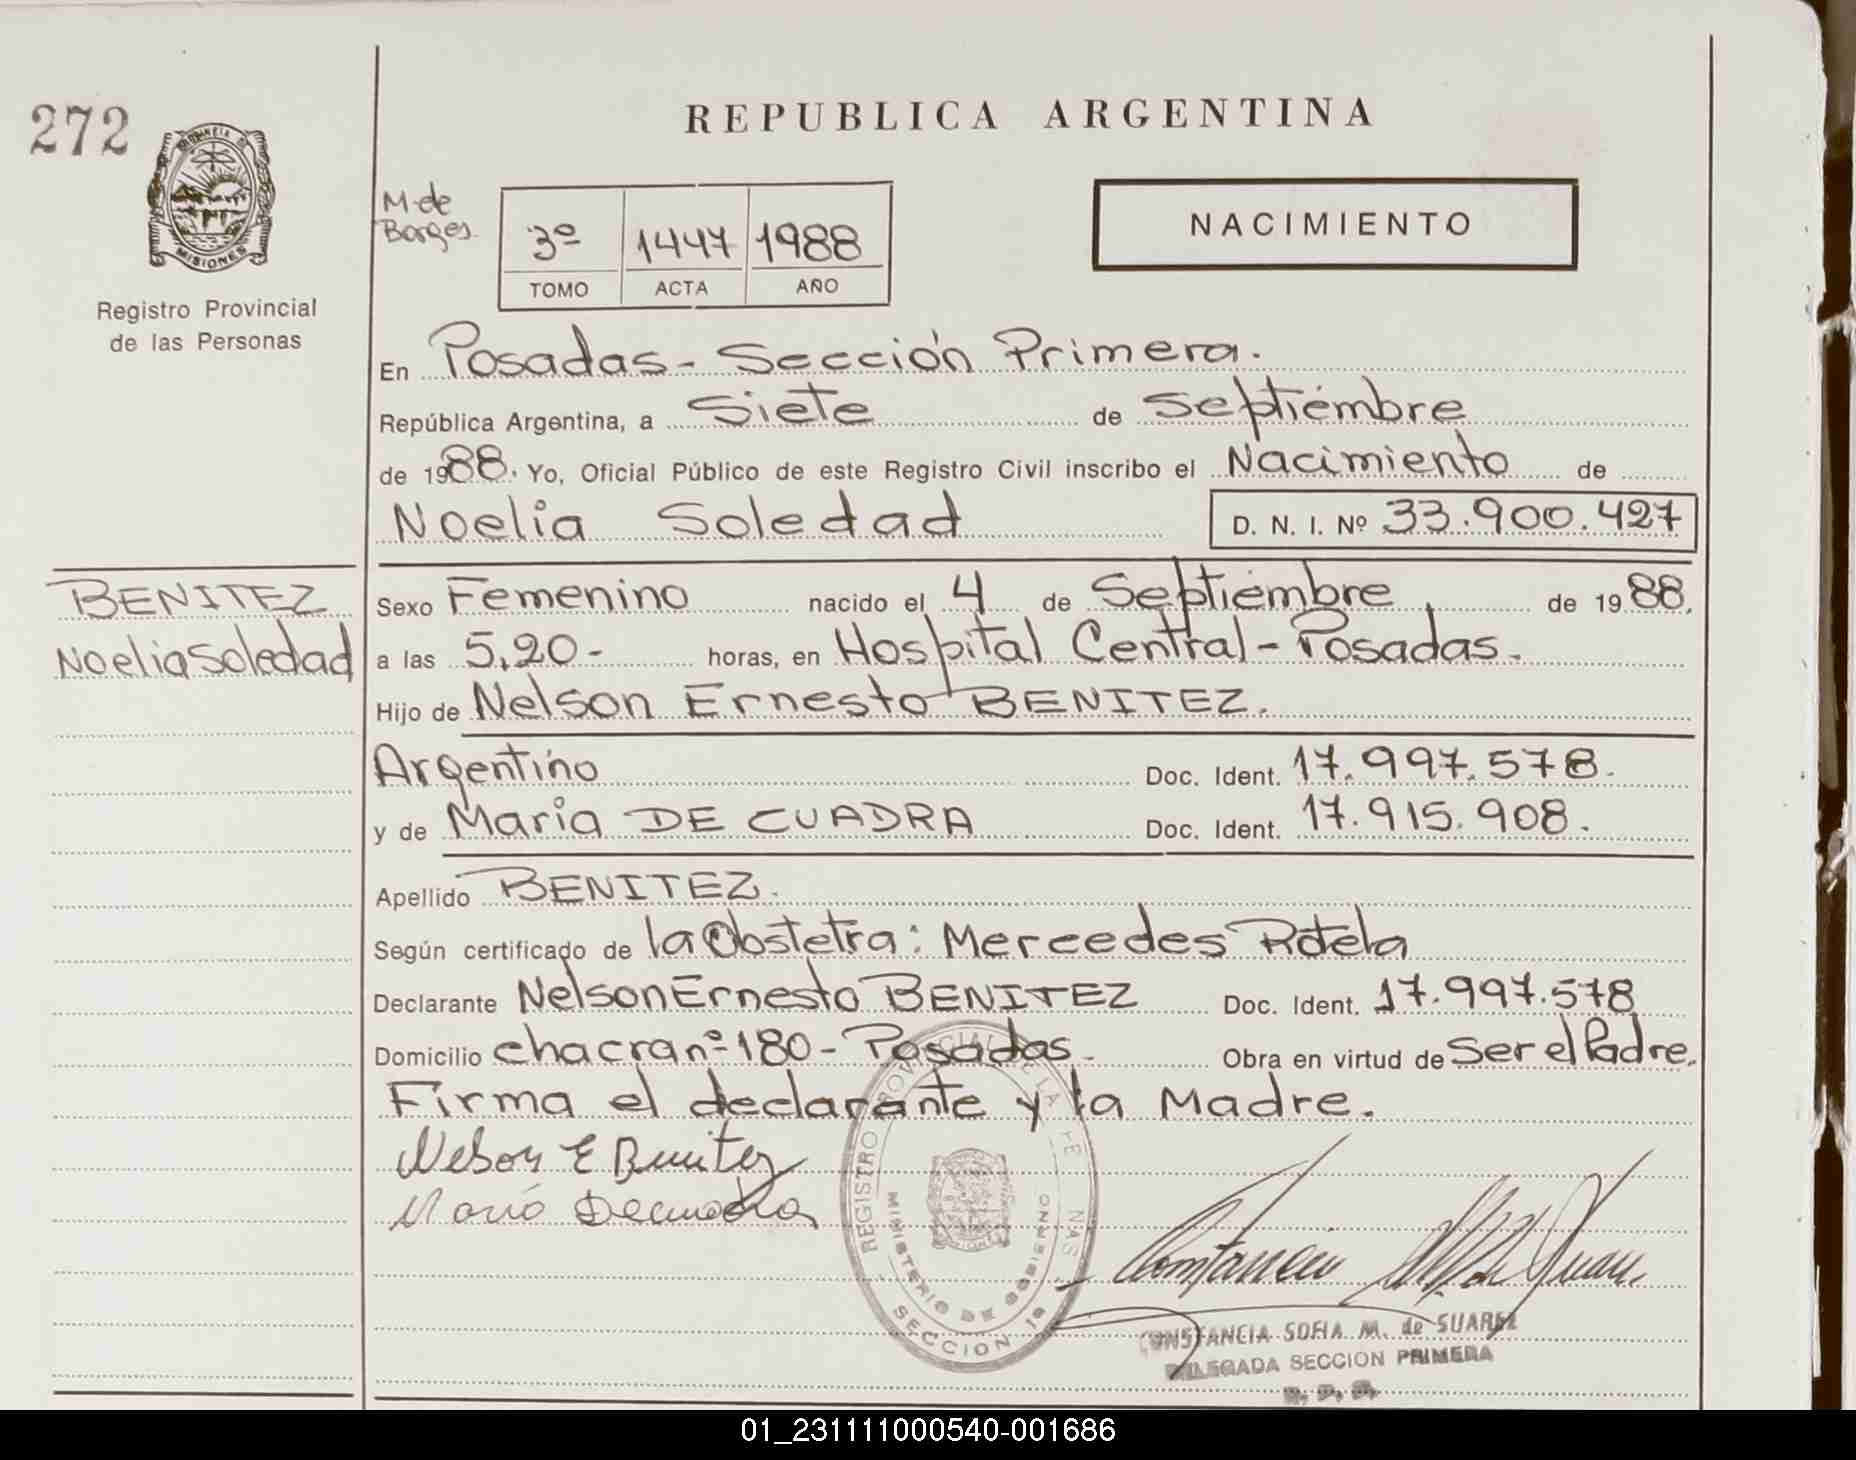 272
PROVINCIA DE
MISIONES
Registro Provincial
de las Personas
REPUBLICA ARGENTINA
M. de
Borges
3º 1447 1988
TOMO ACTA AÑO
NACIMIENTO
En Posadas - Sección Primera.
República Argentina, a Siete de Septiembre
de 1988. Yo, Oficial Público de este Registro Civil inscribo el Nacimiento de
Noelia Soledad D. N. I. Nº 33.900.427
BENITEZ
Noelia Soledad
Sexo Femenino nacido el 4 de Septiembre de 1988.
a las 5,20- horas, en Hospital Central - Posadas.
Hijo de Nelson Ernesto BENITEZ.
Argentino Doc. Ident. 17.997.578.
y de Maria DE CUADRA Doc. Ident. 17.915.908.
Apellido BENITEZ.
Según certificado de la Obstetra: Mercedes Rotela
Declarante Nelson Ernesto BENITEZ Doc. Ident. 17.997.578
Domicilio chacra nº 180 - Posadas. Obra en virtud de Ser el Padre.
Firma el declarante y la Madre.
Nelson E Benitez
Maria Decuadra
REGISTRO PROVINCIAL DE LA PE NAS
MINISTERIO DE GOBIERNO
SECCION 1a
CONSTANCIA SOFIA M. de SUAREZ
DELEGADA SECCION PRIMERA
01_231111000540-001686